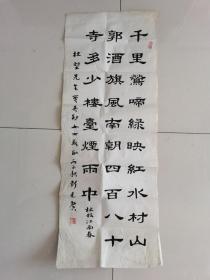 千里鶯啼綠映紅水村山
郭酒旗風南朝四百八十
寺多少樓臺煙雨中 杜牧江南春
先生